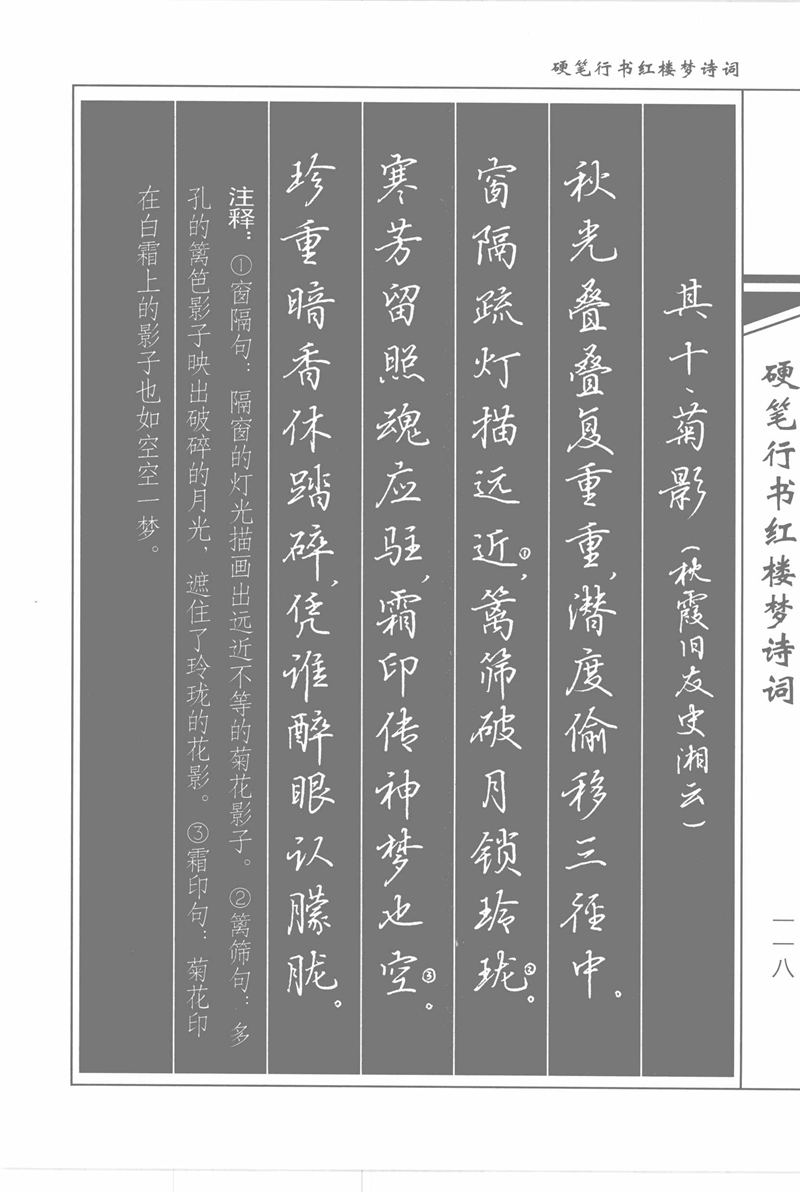 硬笔行书红楼梦诗词
硬笔行书红楼梦诗词
一一八
其十、菊影(秋霞旧友史湘云)
秋光叠叠复重重,潜度偷移三径中。
窗隔疏灯描远近①,篱筛破月锁玲珑②。
寒芳留照魂应驻,霜印传神梦也空③。
珍重暗香休踏碎,凭谁醉眼认朦胧。
注释:①窗隔句:隔窗的灯光描画出远近不等的菊花影子。②篱筛句:多
孔的篱笆影子映出破碎的月光,遮住了玲珑的花影。③霜印句:菊花印
在白霜上的影子也如空空一梦。